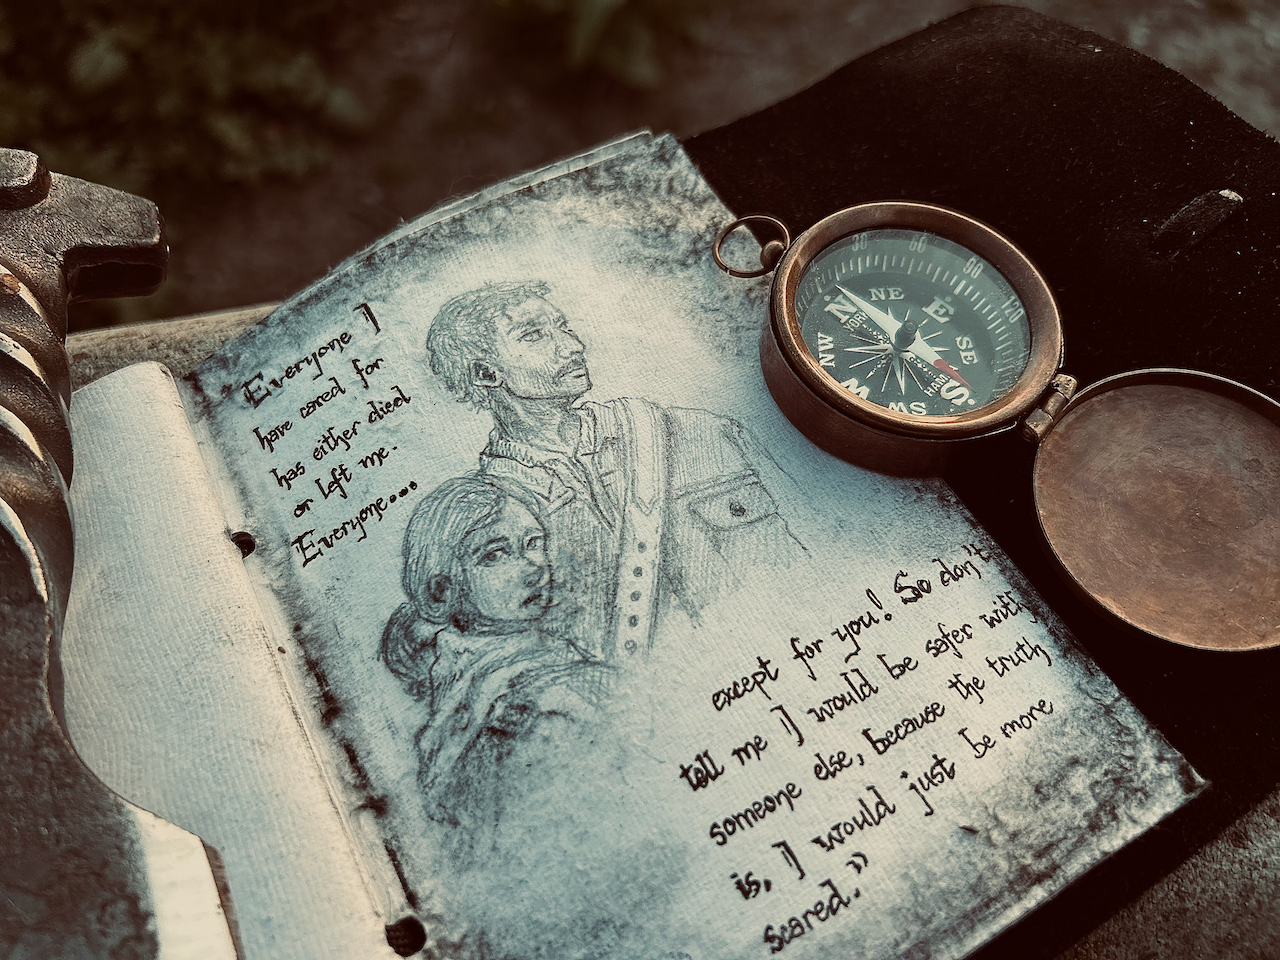 Everyone I
have cared for
has either died
or left me.
Everyone...
except for you! So don't
tell me I would be safer with
someone else, because the truth
is, I would just be more
scared."
30
60
90
120
N
NE
E
SE
S
SW
W
NW
YORK
HAM